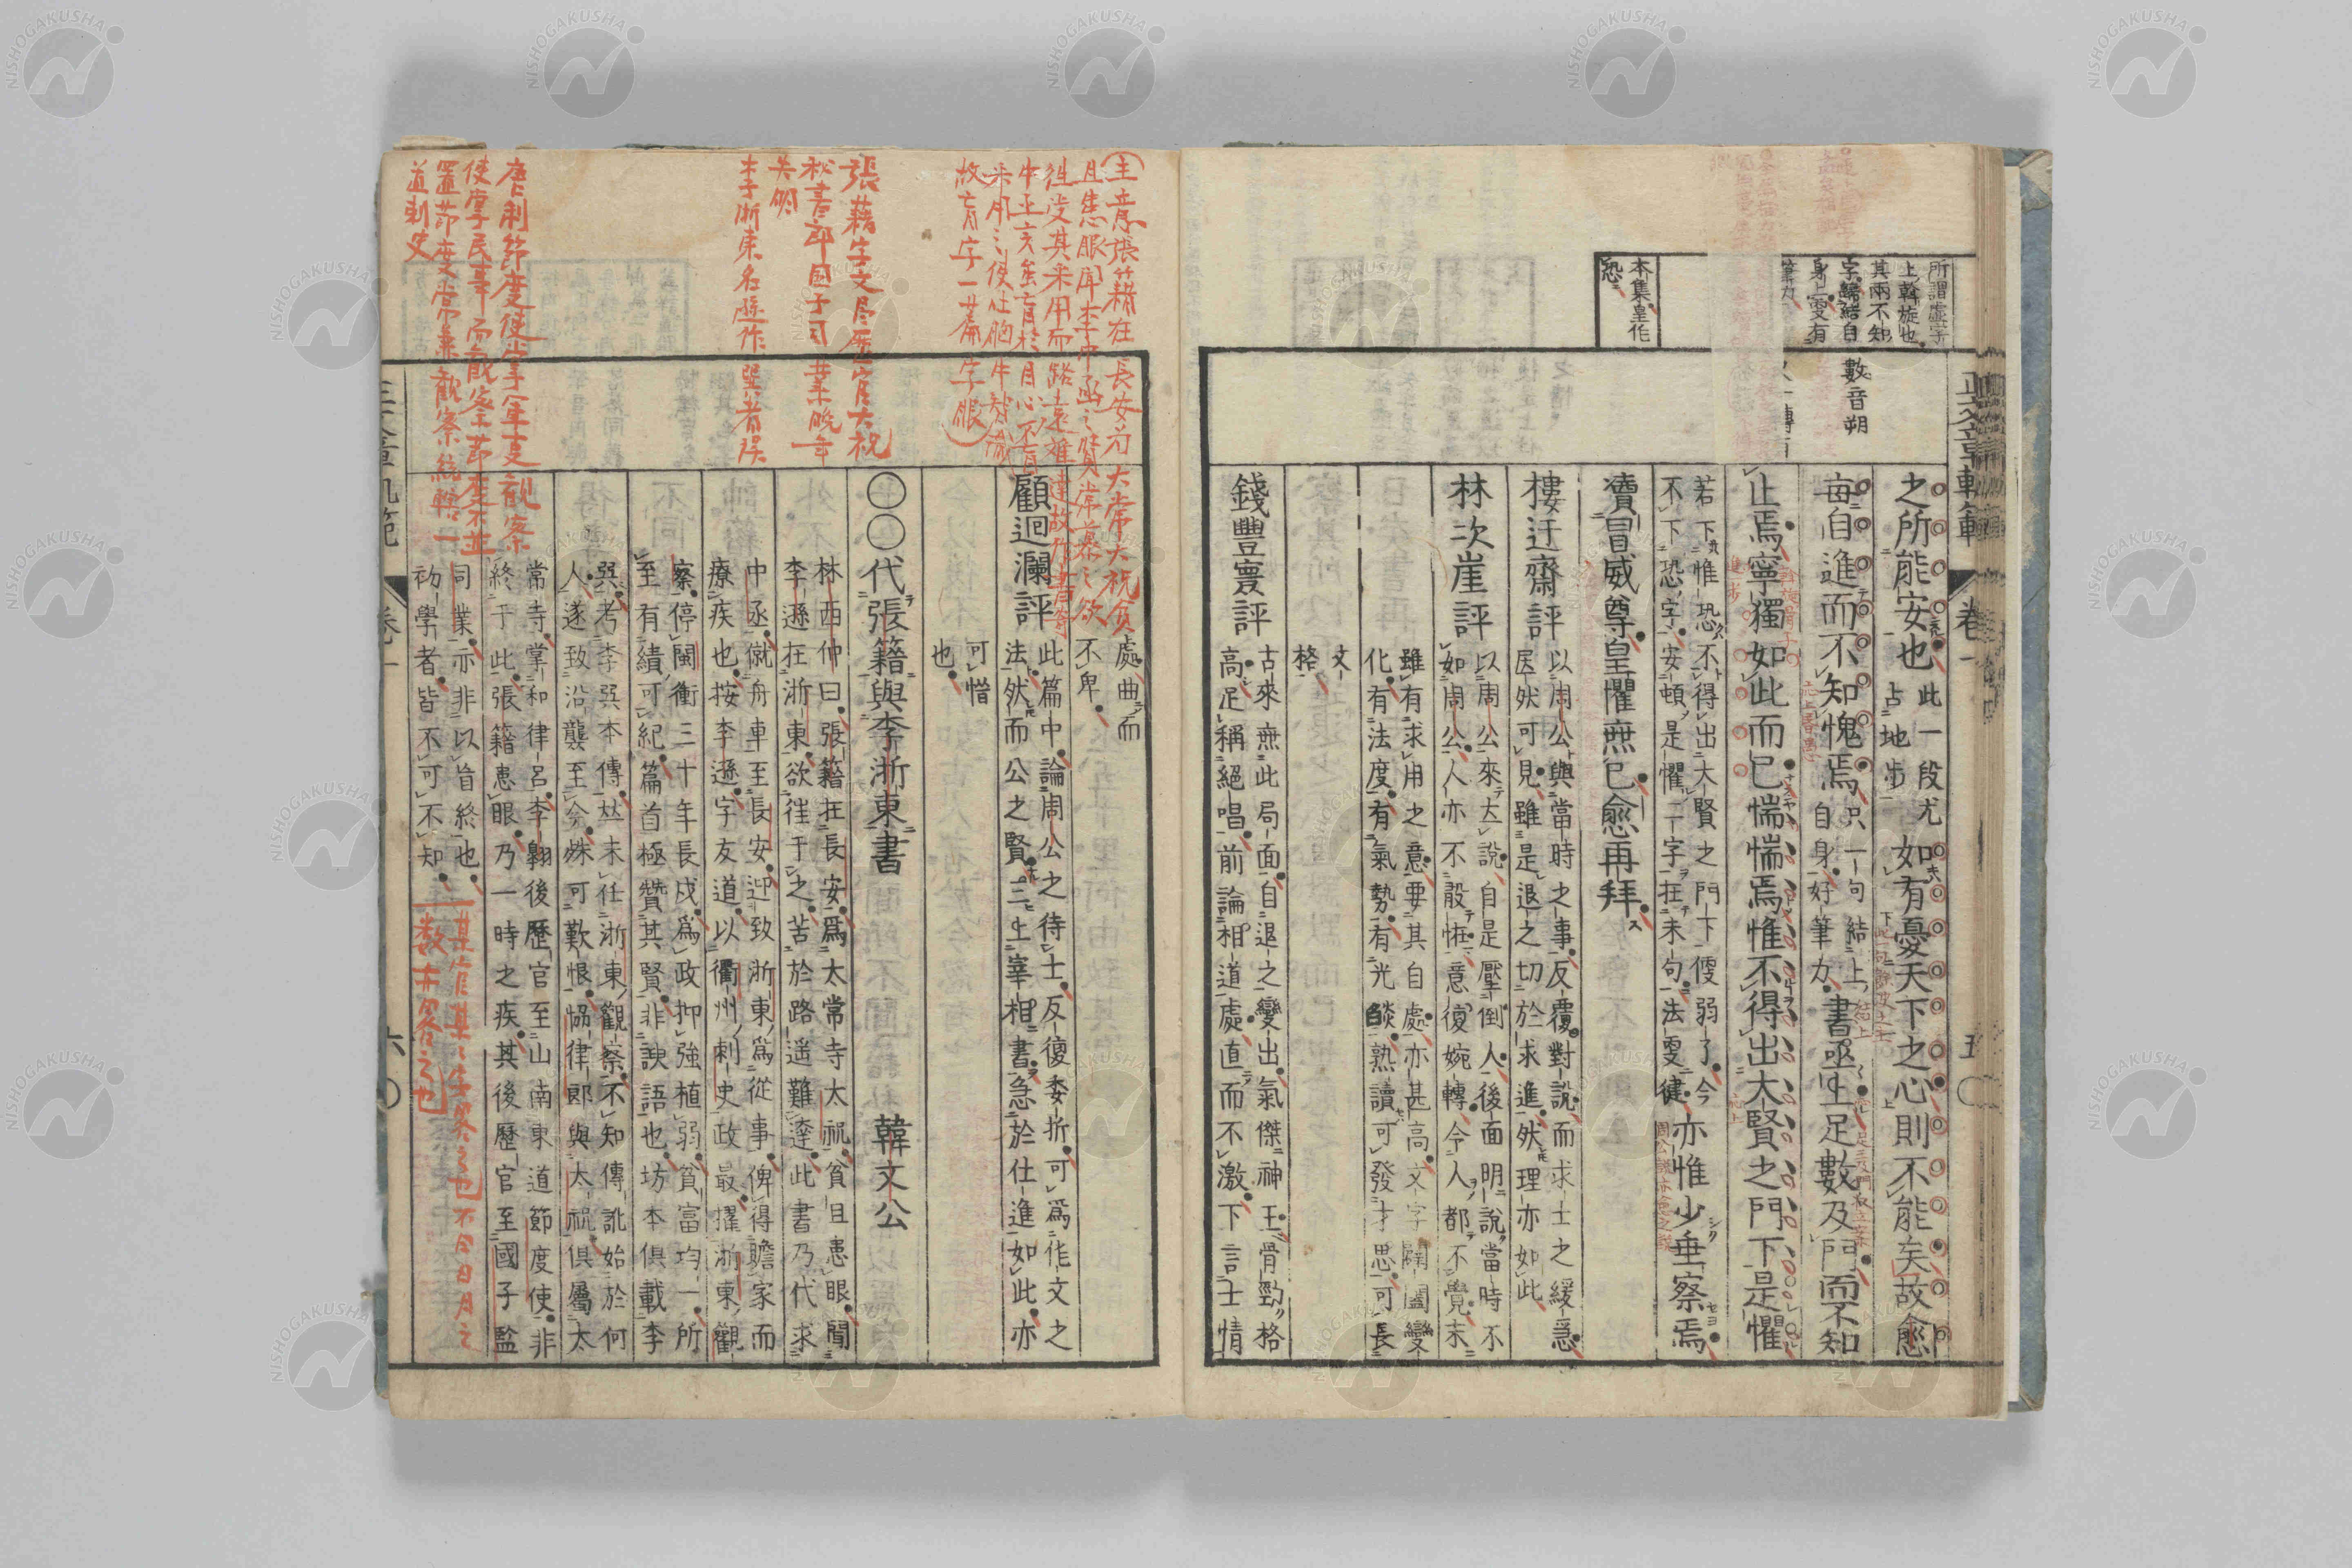 所謂虛字
上斡旋也
其兩不知
字歸結自
身上更有
筆力
本集皇作
恐
數音朔
之所能安也
此一段尤
占地步
如有憂天下之心則不能矣故愈
每自進而不知愧焉
只一句結上
自身好筆力
書亟上足數及門而不知
止焉寧獨如此而已惴惴焉惟不得出大賢之門下是懼
若下惟恐不得出大賢之門下便弱了今
不下恐字安頓是懼二字在末句法更健
亦惟少垂察焉
瀆冒威尊皇懼無已愈再拜
樓迂齋評
以周公與當時之事反覆對說而求士之緩急
居然可見雖是退之切於求進然理亦如此
林次崖評
以周公來大說自是壓倒人後面明說當時不
如周公人亦不殷怪意復婉轉今人都不覺末
雖有求用之意要其自處亦甚高文字闢闔變
化有法度有氣勢有光燄熟讀可發才思可長
文
格
錢豐寰評
古來無此局面自退之變出氣傑神王骨勁格
高足稱絕唱前論相道處直而不激下言士情
處曲而
不卑
顧迴瀾評
此篇中論周公之待士反復委折可爲作文之
法然而公之賢三上宰相書急於仕進如此亦
可惜
也
〇〇代張籍與李浙東書
韓文公
林西仲曰張籍在長安爲太常寺太祝貧且患眼聞
李遜在浙東欲往于之苦於路遥難達此書乃代求
中丞僦舟車至長安迎致浙東爲從事俾得贍家而
療疾也按李遜字友道以衢州刺史政最擢浙東觀
察停閩衢三十年長戍爲政抑強植弱貧富均一所
至有績可紀篇首極贊其賢非諛語也坊本俱載李
巽考李巽本傳並未任浙東觀察不知傳訛始於何
人遂致沿襲至今殊可歎恨協律郎與太祝俱屬太
常寺掌和律呂李翱後歷官至山南東道節度使非
終于此張籍患眼乃一時之疾其後歷官至國子監
司業亦非以盲終也
初學者皆不可不知
主意張籍在長安爲大常大祝貧
且患眼聞李中丞之賢常慕之欲
往受其采用而路遠難達故作書寄
故盲字一篇字眼
張藉字文昌歷官大祝
秘書郎國子司業晚年
失明
李浙東名遜作巽者誤
唐制節度使掌軍吏觀察
使掌民事而觀察節度不並
置節度常兼觀察統轄一
道刺史
卷一
五
六